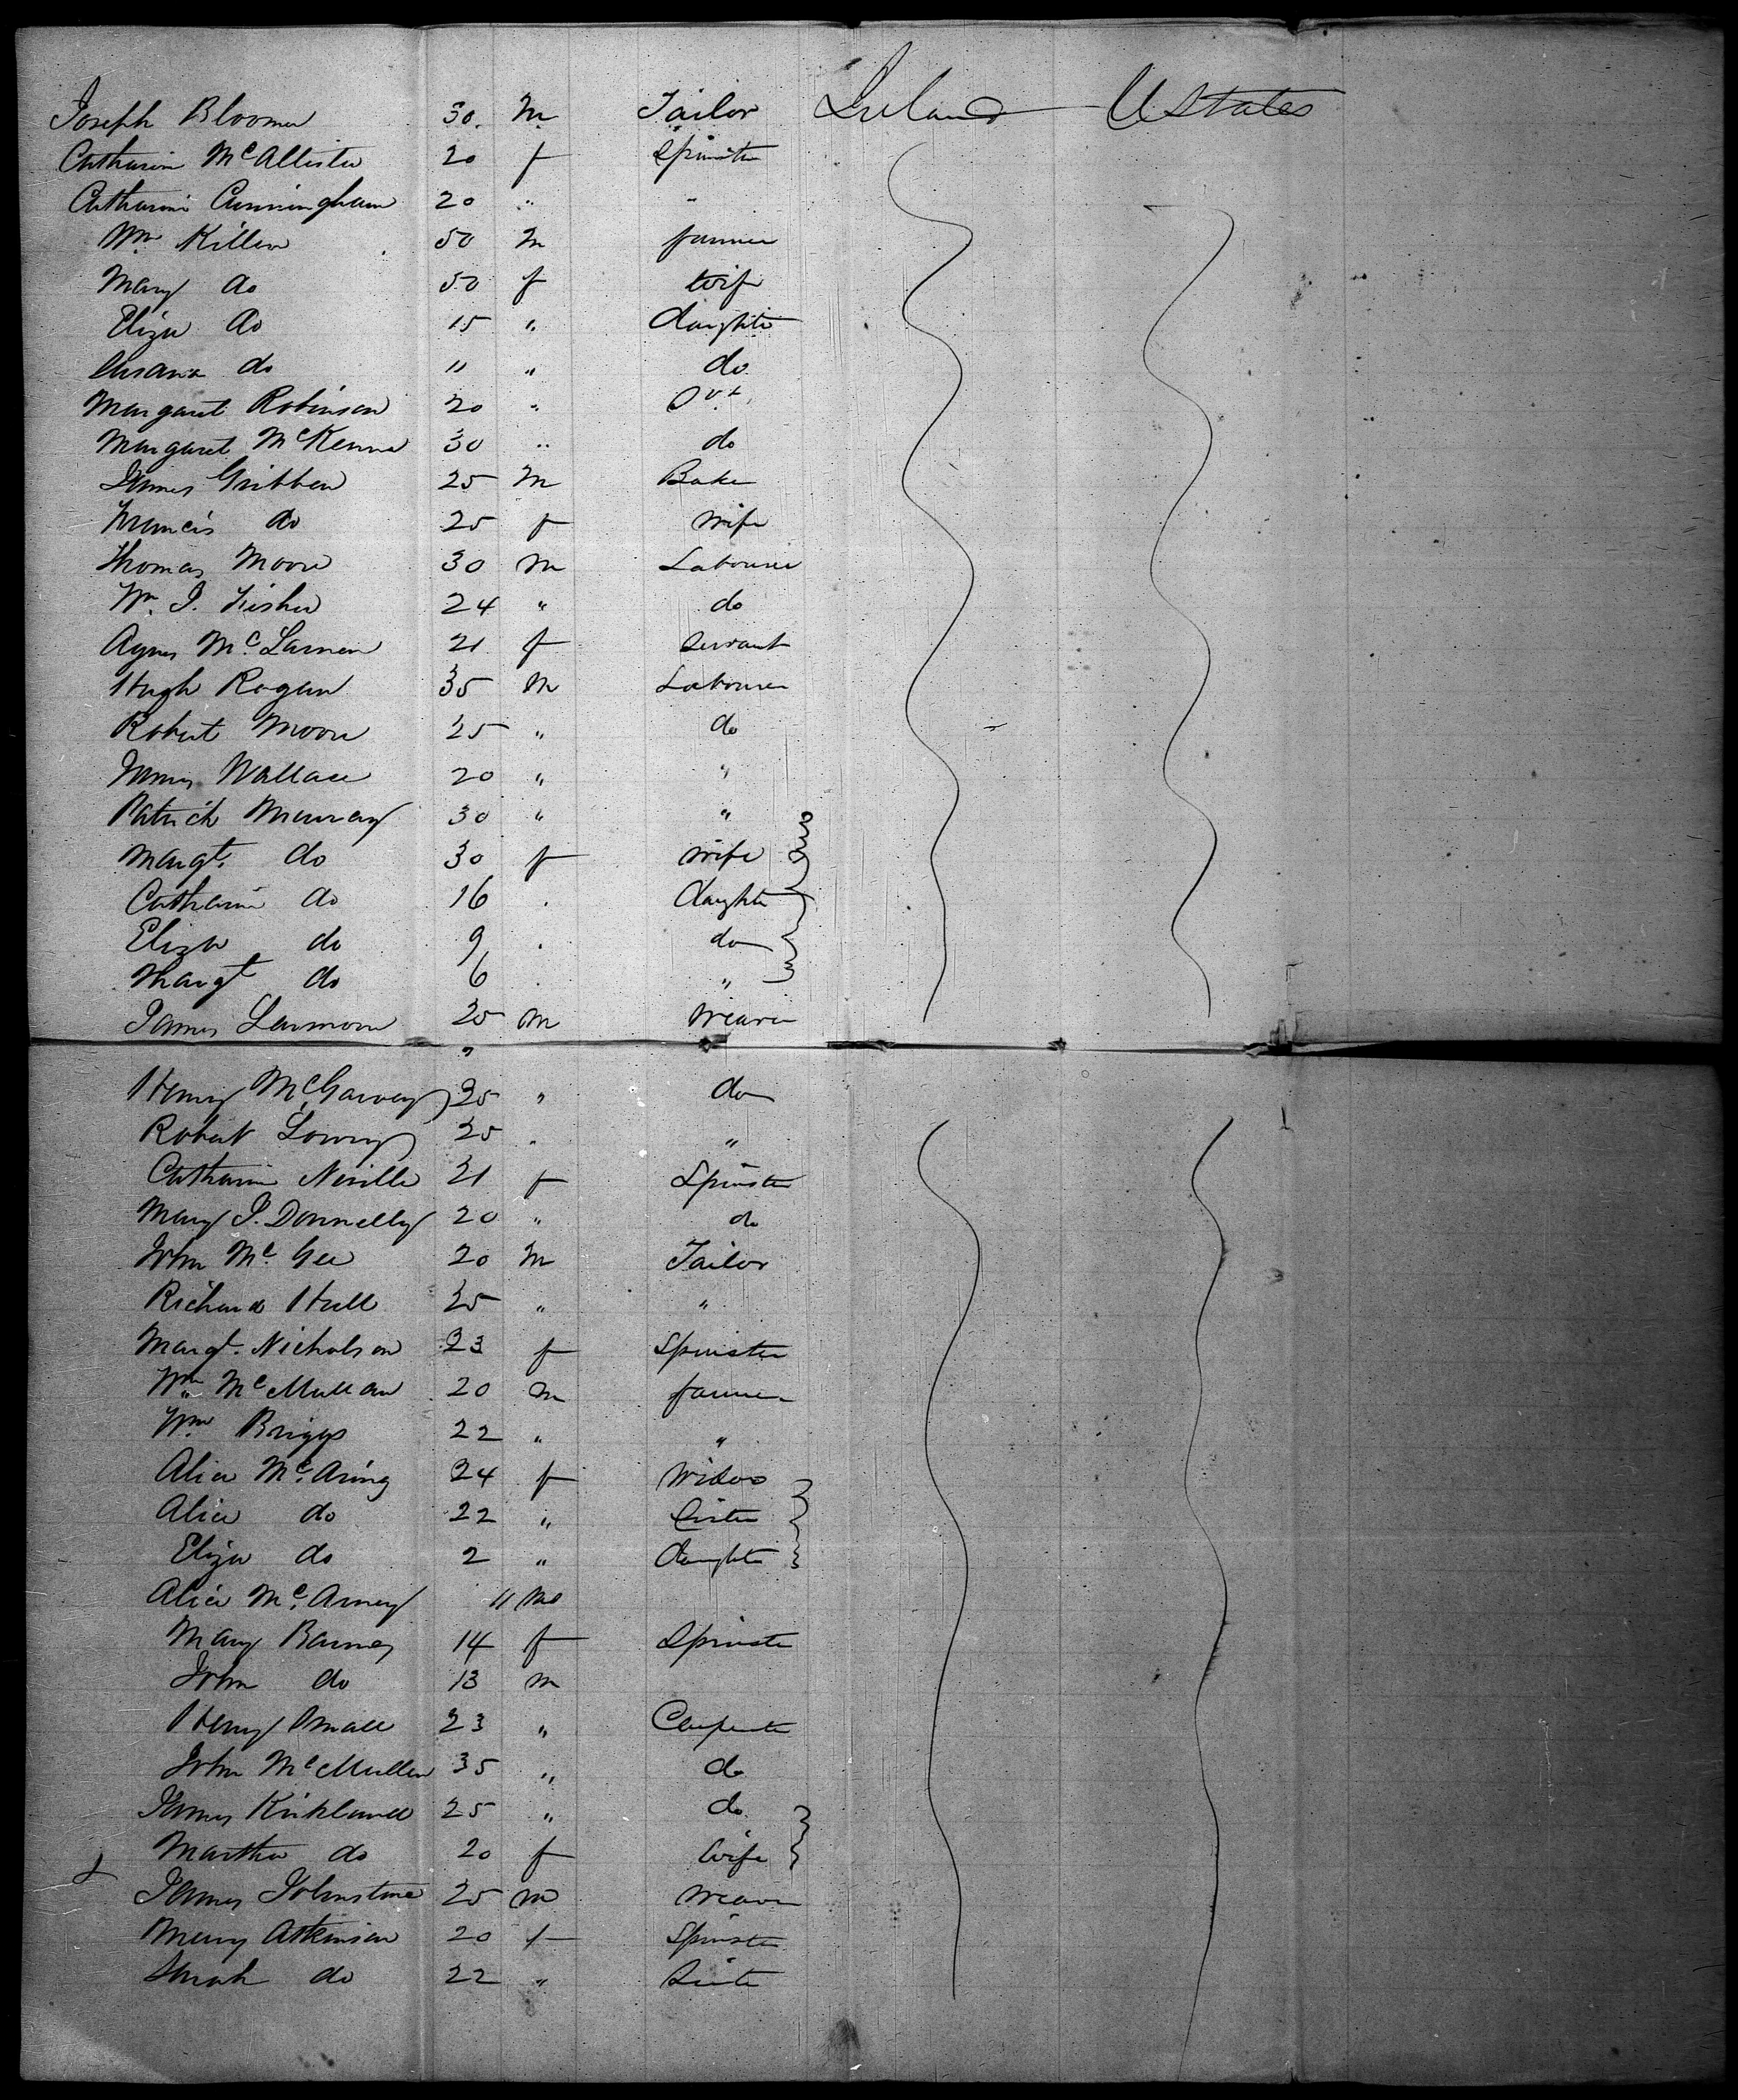 Joseph Bloomer 30. M. Tailor Ireland U States
Catharine McAllister 20 f Spinster
Catharine Cunningham 20 " "
Wm Killen 50 M farmer
Mary do 50 f wife
Eliza do 15 " daughter
Susana do 11 " do
Margaret Robinson 20 " Svt
Margaret McKenna 30 " do
James Gribben 25 M Baker
Francis do 25 f wife
Thomas Moore 30 M Labourer
Wm J. Fisher 24 " do
Agnes Mc 21 f Servant
Hugh Rogan 35 M Labourer
Robert Moore 25 " do
James Wallace 20 " "
Patrick Murray 30 " "
Margt. do 30 f wife
Catharine do 16 . daughter
Eliza do 9 . do
Margt do 6 . "
James Larmour 25 M weaver
Henry McGarvey 25 " do
Robert Lowry 25 . "
Catharine Neville 21 f Spinster
Mary J. Donnelly 20 " do
John McGee 20 M Tailor
Richard Hull 25 " "
Margt. Nicholson 23 f Spinster
Wm McMullan 20 M farmer
Wm Briggs 22 " "
Alice 24 f Widow
Alice do 22 " Sister
Eliza do 2 " daughter
Alice 11 Mo
Mary 14 f Spinster
John do 13 M
Henry Small 23 " Carpenter
John McMullen 35 " do
James Kirkland 25 " do
Martha do 20 f Wife
James Johnstone 25 M weaver
Mary Atkinson 20 f Spinster
Sarah do 22 " Sister